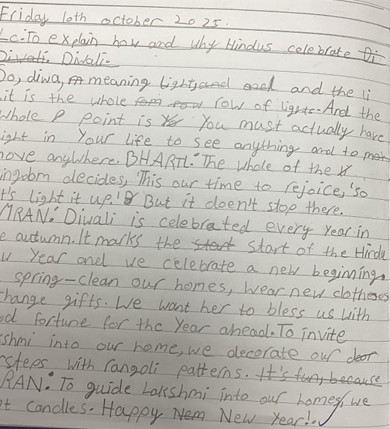 Friday 10th october 2025.
Lc: To explain how and why Hindus celebrate Di
Divali. Diwali.
So, diwa, meaning light, and and the li
it is the whole row of lights. And the
whole P point is You must actually have
ight in your life to see anything and to
move anywhere. BHARTI: The whole of the
ingdom decides, 'This our time to rejoice, 'so
t's light it up.' But it doen't stop there.
MRAN: Diwali is celebrated every year in
e autumn. It marks the start start of the Hindu
w Year and we celebrate a new beginning.
spring-clean our homes, wear new clothes
change gifts. We want her to bless us with
od fortune for the year ahead. To invite
shmi into our home, we decorate our door
rsteps with rangoli patterns. It's fun, because
RAN: To guide Lakshmi into our homes, we
et candles. Happy Nem New Year!